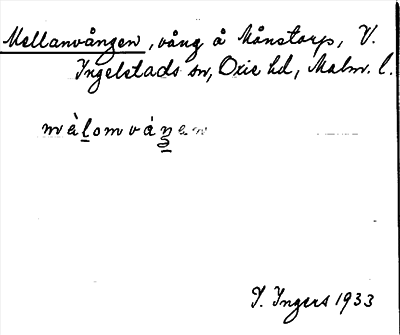 Mellanvången, vång å Månstorp, V.
Ingelstads sn, Oxie hd, Malm. l.
màlomváŋen
I. Ingers 1933